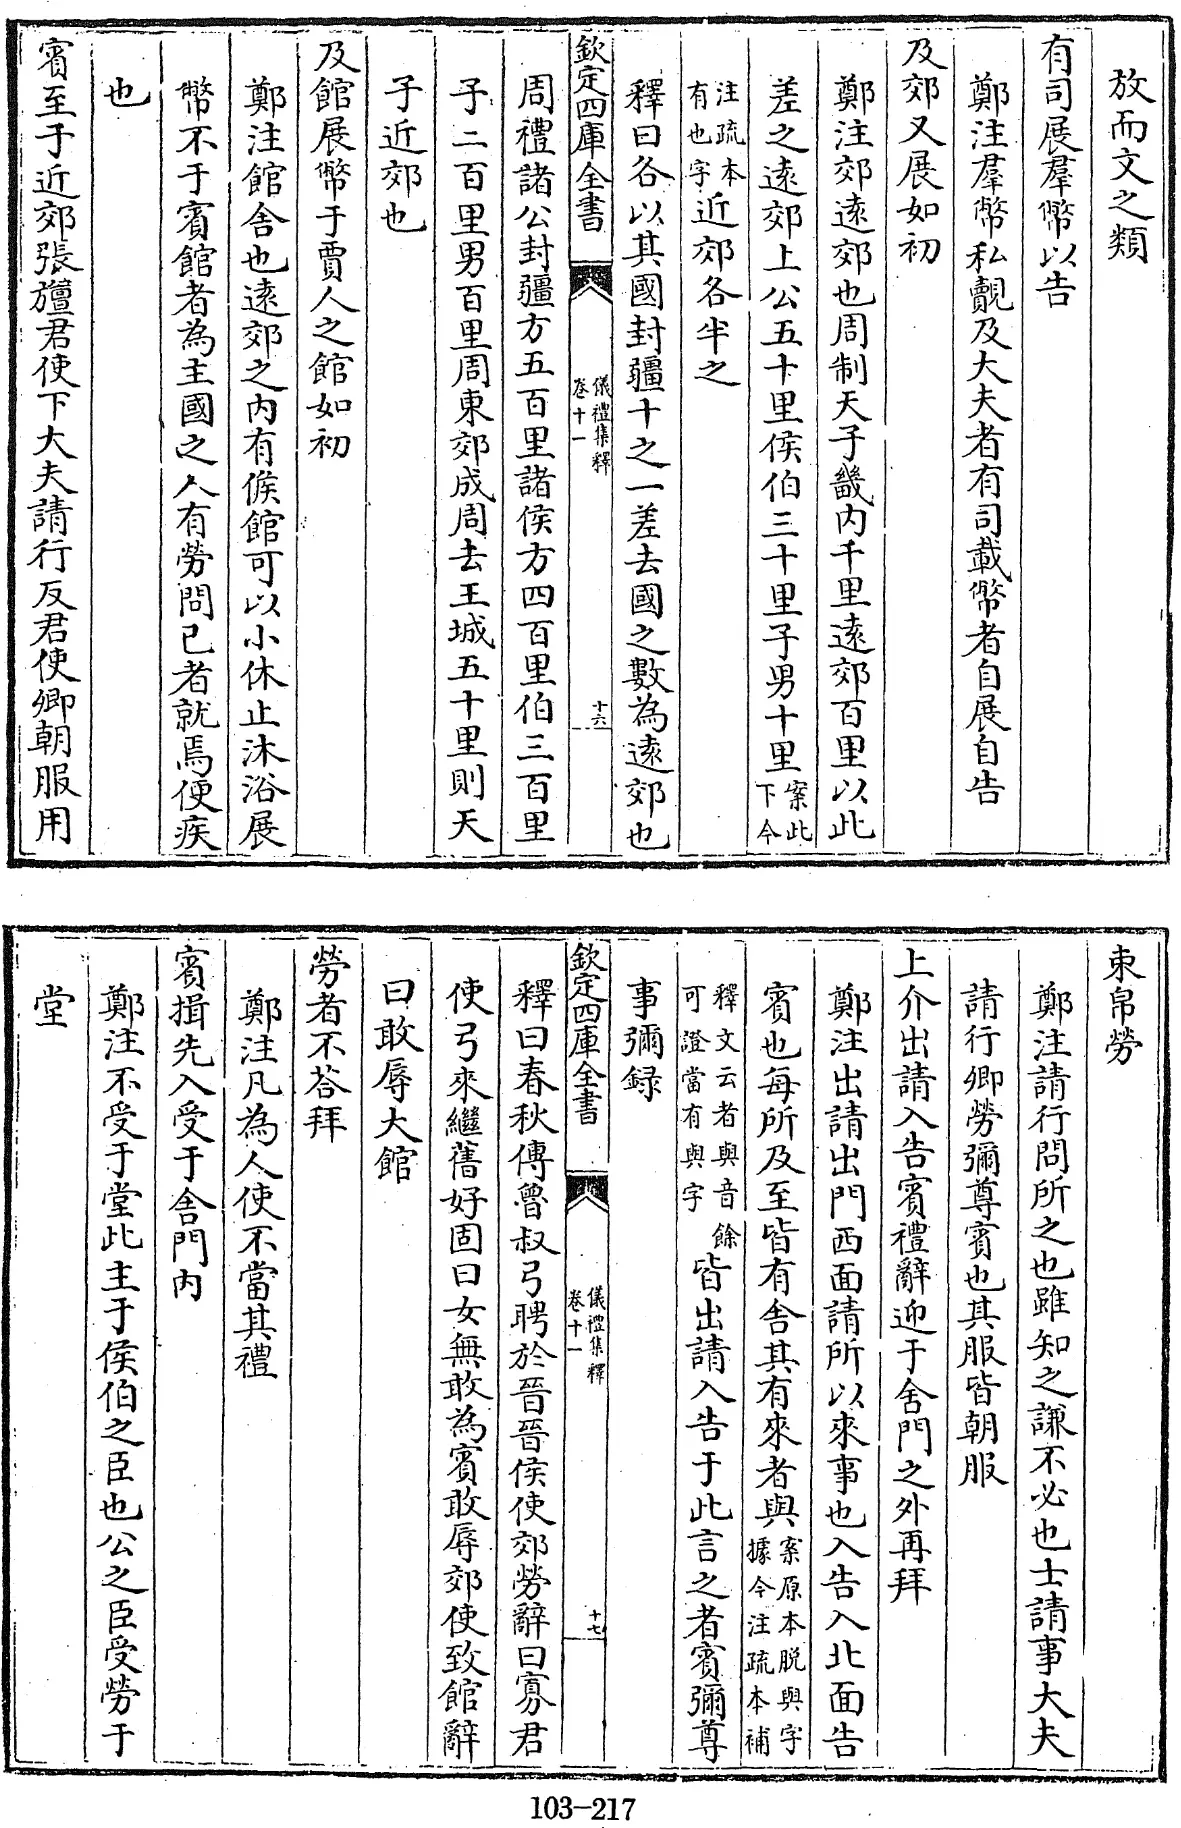 放而文之類
有司展羣幣以告
鄭注羣幣私覿及大夫者有司載幣者自展自告
及郊又展如初
鄭注郊遠郊也周制天子畿内千里遠郊百里以此
差之遠郊上公五十里侯伯三十里子男十里案此下今
注疏本有也字近郊各半之
釋曰各以其國封疆十之一差去國之數為遠郊也
欽定四庫全書
儀禮集釋
卷十一
十六
周禮諸公封疆方五百里諸侯方四百里伯三百里
子二百里男百里周東郊成周去王城五十里則天
子近郊也
及館展幣于賈人之館如初
鄭注館舍也遠郊之内有候館可以小休止沐浴展
幣不于賓館者為主國之人有勞問己者就焉便疾
也
賓至于近郊張旜君使下大夫請行反君使卿朝服用
束帛勞
鄭注請行問所之也雖知之謙不必也士請事大夫
請行卿勞彌尊賓也其服皆朝服
上介出請入告賓禮辭迎于舍門之外再拜
鄭注出請出門西面請所以來事也入告入北面告
賓也每所及至皆有舍其有來者與案原本脱與字據今注疏本補
釋文云者與音餘可證當有與字皆出請入告于此言之者賓彌尊
事彌録
欽定四庫全書
儀禮集釋
卷十一
十七
釋曰春秋傳魯叔弓聘於晉晉侯使郊勞辭曰寡君
使弓來繼舊好固曰女無敢為賓敢辱郊使致館辭
曰敢辱大館
勞者不荅拜
鄭注凡為人使不當其禮
賓揖先入受于舍門内
鄭注不受于堂此主于侯伯之臣也公之臣受勞于
堂
103-217